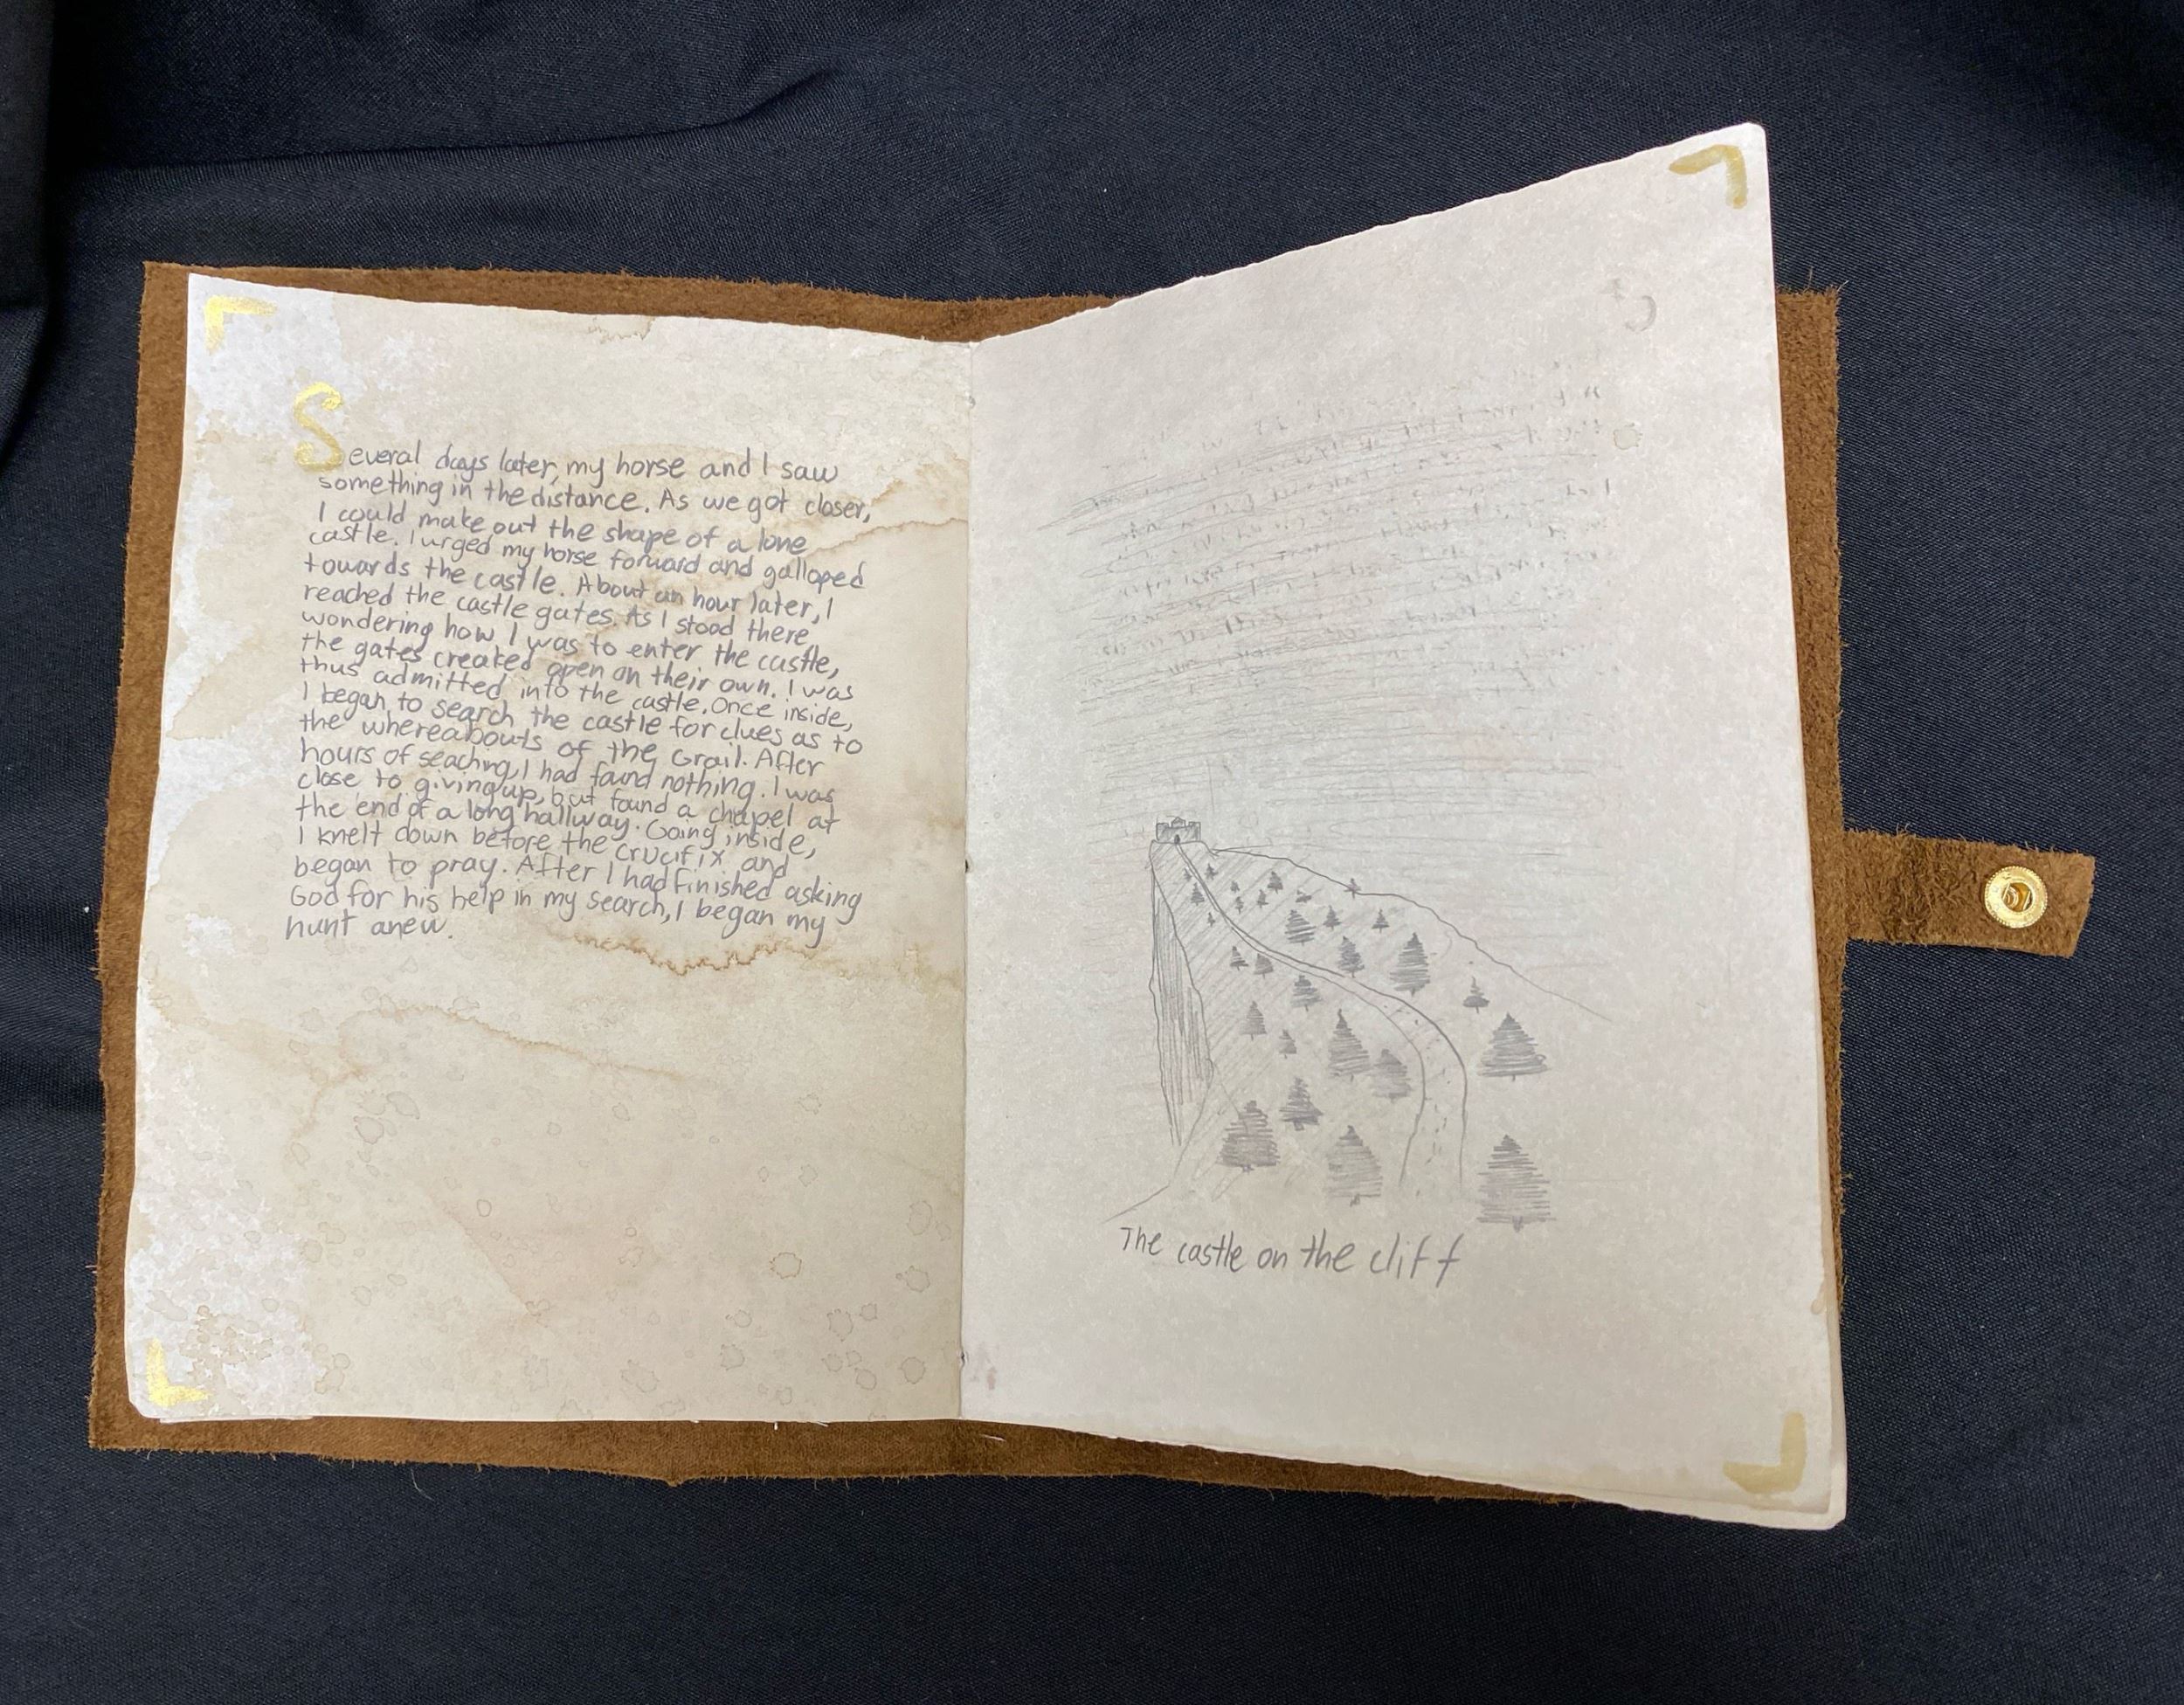 Several days later, my horse and I saw
something in the distance. As we got closer,
I could make out the shape of a lone
castle. I urged my horse forward and galloped
towards the castle. About an hour later, I
reached the castle gates. As I stood there
wondering how I was to enter the castle,
the gates creaked open on their own. I was
thus admitted into the castle. Once inside,
I began to search the castle for clues as to
the whereabouts of the Grail. After
hours of seaching, I had found nothing. I was
close to giving up, but found a chapel at
the end of a long hallway. Going inside,
I knelt down before the crucifix and
began to pray. After I had finished asking
God for his help in my search, I began my
hunt anew.
The castle on the cliff